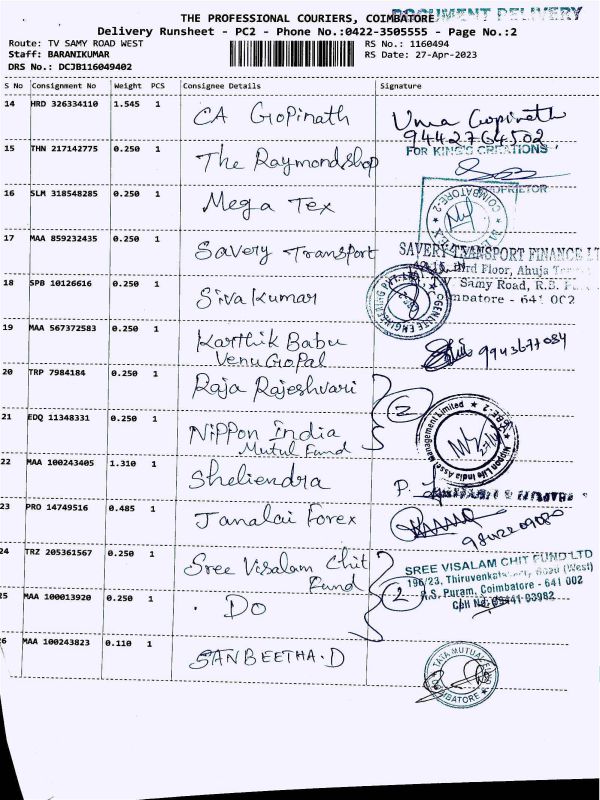 DOCUMENT DELIVERY
THE PROFESSIONAL COURIERS, COIMBATORE
Delivery Runsheet - PC2 - Phone No.:0422-3505555 - Page No.:2
Route: TV SAMY ROAD WEST
RS No.: 1160494
Staff: BARANIKUMAR
RS Date: 27-Apr-2023
DRS No.: DCJB116049402
S No Consignment No Weight PCS Consignee Details Signature
14 HRD 326334110 1.545 1 CA Gopinath Uma Gopinath
9442764502
15 THN 217142775 0.250 1 The Raymondshop FOR KING'S CREATIONS
PROPRIETOR
16 SLM 318548285 0.250 1 Mega Tex COIMBATORE-2
17 MAA 859232435 0.250 1 Savery Transport SAVERY TRANSPORT FINANCE LT
Third Floor, Ahuja
Samy Road, R.S.
mbatore - 641 002
18 SPB 10126616 0.250 1 Siva Kumar
19 MAA 567372583 0.250 1 Karthik Babu
VenuGopal
9943677084
20 TRP 7984184 0.250 1 Raja Rajeshvari
2
21 EDQ 11348331 0.250 1 Nippon India
Mutul Fund
Nippon Life India Asset Management Limited
22 MAA 100243405 1.310 1 Sheliendra P.
23 PRO 14749516 0.485 1 Janalai Forex
24 TRZ 205361567 0.250 1 Sree Visalam Chit
Fund
2
SREE VISALAM CHIT FUND LTD
196/23, Thiruvenkata Road (West)
R.S. Puram, Coimbatore - 641 002
25 MAA 100013920 0.250 1 . Do
26 MAA 100243823 0.110 1 SANBEETHA.D
TATA MUTUAL FUND
COIMBATORE